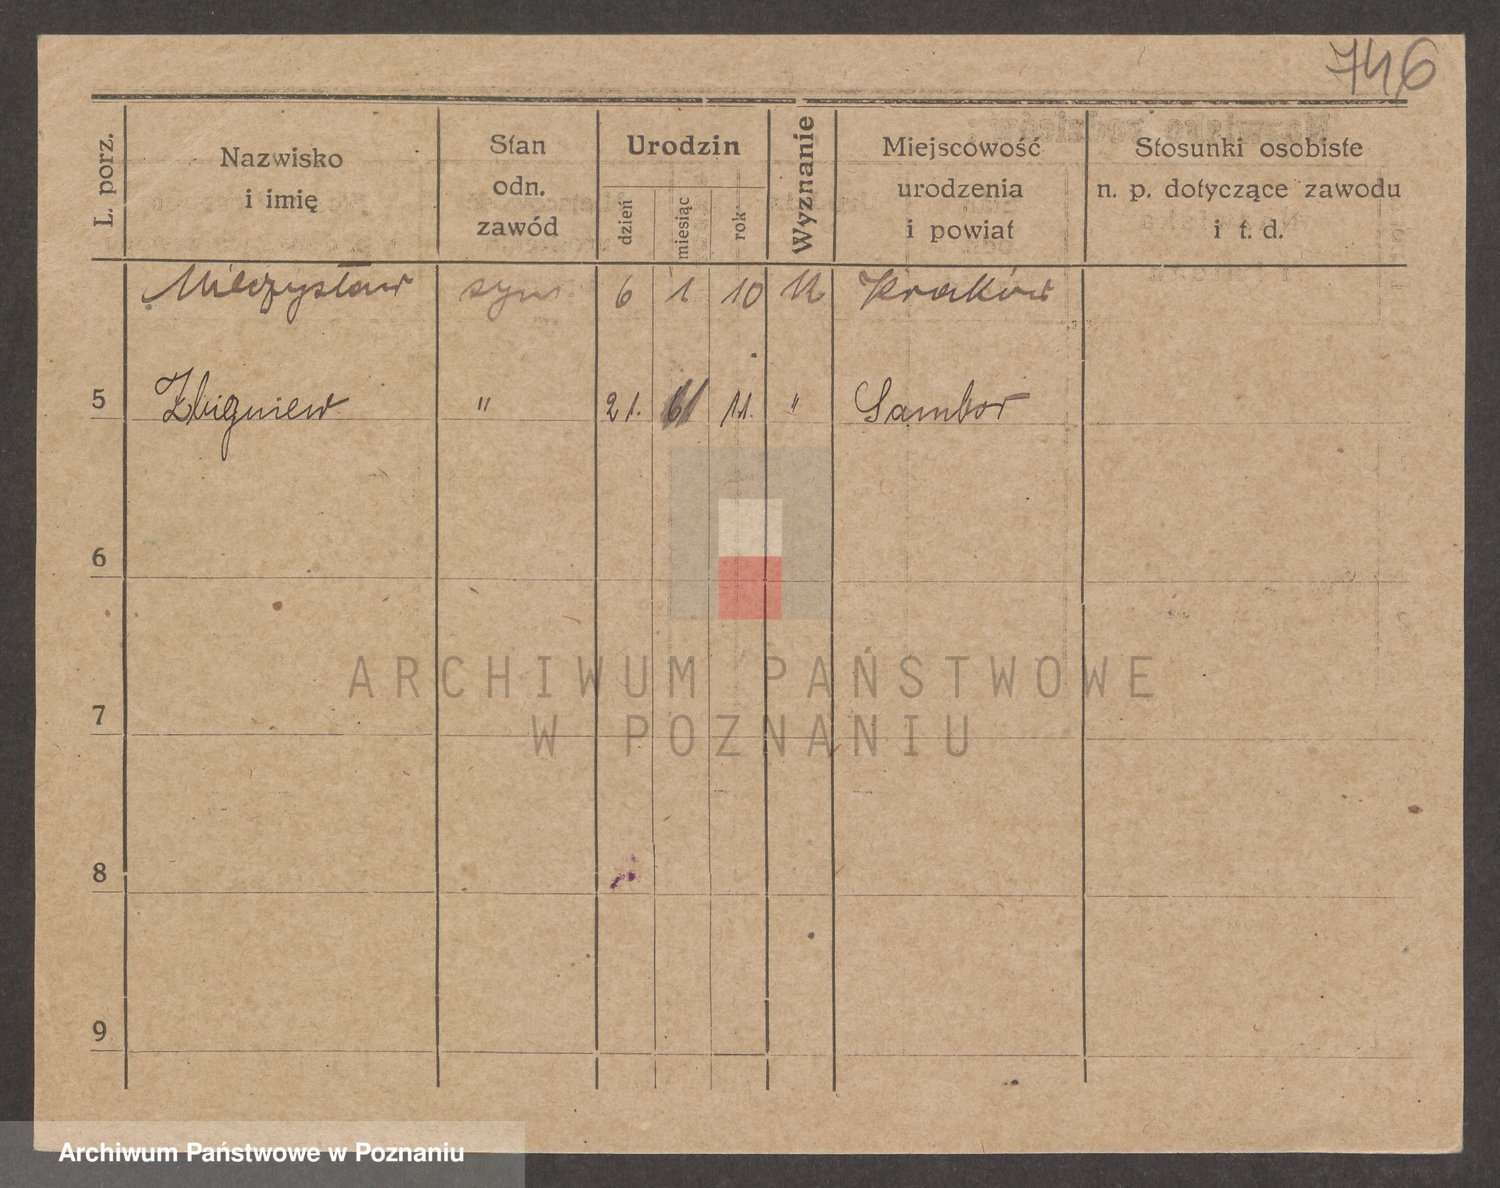 746
L. porz.
Nazwisko
i imię
Stan
odn.
zawód
Urodzin
dzień
miesiąc
rok
Wyznanie
Miejscowość
urodzenia
i powiat
Stosunki osobiste
n. p. dotyczące zawodu
i t. d.
Mieczysław syn 6 1 10 Kraków
5 Zbigniew " 21. 11. " Sambor
6
7
8
9
ARCHIWUM PAŃSTWOWE
W POZNANIU
Archiwum Państwowe w Poznaniu